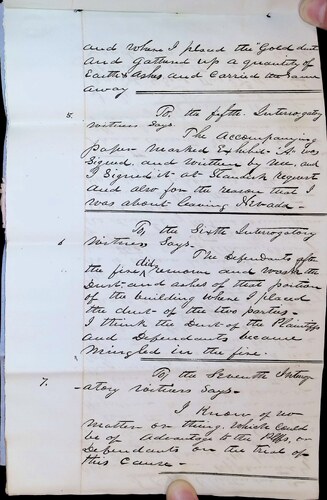 and where I placed the Gold dust
and gathered up a quantity of
Earth & Ashes and carried the same
away
5. To the fifth Interrogatory
witness Says.
The Accompanying
paper Marked Exhibit A was
Signed and written by me, and
I Signed it at request
and also for the reason that I
was about leaving Nevada -
6. To the Sixth Interrogatory
Witness Says.
The Defendants after
the fire did remove and wash the
Dust and ashes of that portion
of the building where I placed
the dust of the two parties -
I think the Dust of the Plaintiffs
and Defendants became
Mingled in the fire.
7. To the Seventh Interrog-
atory witness Says -
I Know of no
matter or thing which could
be of Advantage to the Plffs. or
Defendants on the trial of
this cause -